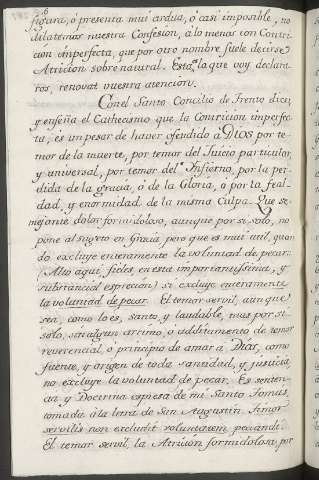 figura, ó presenta mui ardua, ó casi imposible, no
dilatemos nuestra Confesion, á lo menos con Contri-
cion imperfecta, que por otro nombre suele decirse
Atricion sobrenatural. Esta es la que voy declara
ros, renovat vuestra atencion.
Con el Santo Concilio de Trento dice,
y enseña el Cathecismo que la Contricion imperfec-
ta, es un pesar de haver ofendido á DIOS por te-
mor de la muerte, por temor del Juicio particular,
y universal, por temor del Infierno, por la per-
dida de la gracia, ó de la Gloria, ó por la feal-
dad, y enormidad de la misma Culpa. Que se-
mejante dolor formidoloso, aunque por si solo, no
pone al sugeto en Gracia pero que es mui util, quan-
do excluye enteramente la voluntad de pecar.
(Alto aqui fieles, en esta importantissima, y
substancial expresion) si excluye enteramente
la voluntad de pecar. El temor servil, aunque
sea, como lo es, santo, y laudable, mas por si
solo, sin algun arrimo, ó additamento de temor
reverencial, ó principio de amar á Dios, como
fuente, y origen de toda santidad, y justicia,
no excluye la voluntad de pecar. Es senten-
cia y Doctrina expresa de mi Santo Tomas,
tomada á la letra de San Augustin. Timor
servilis non excludit voluntatem peccandi.
El temor servil, la Atricion formidolosa, por